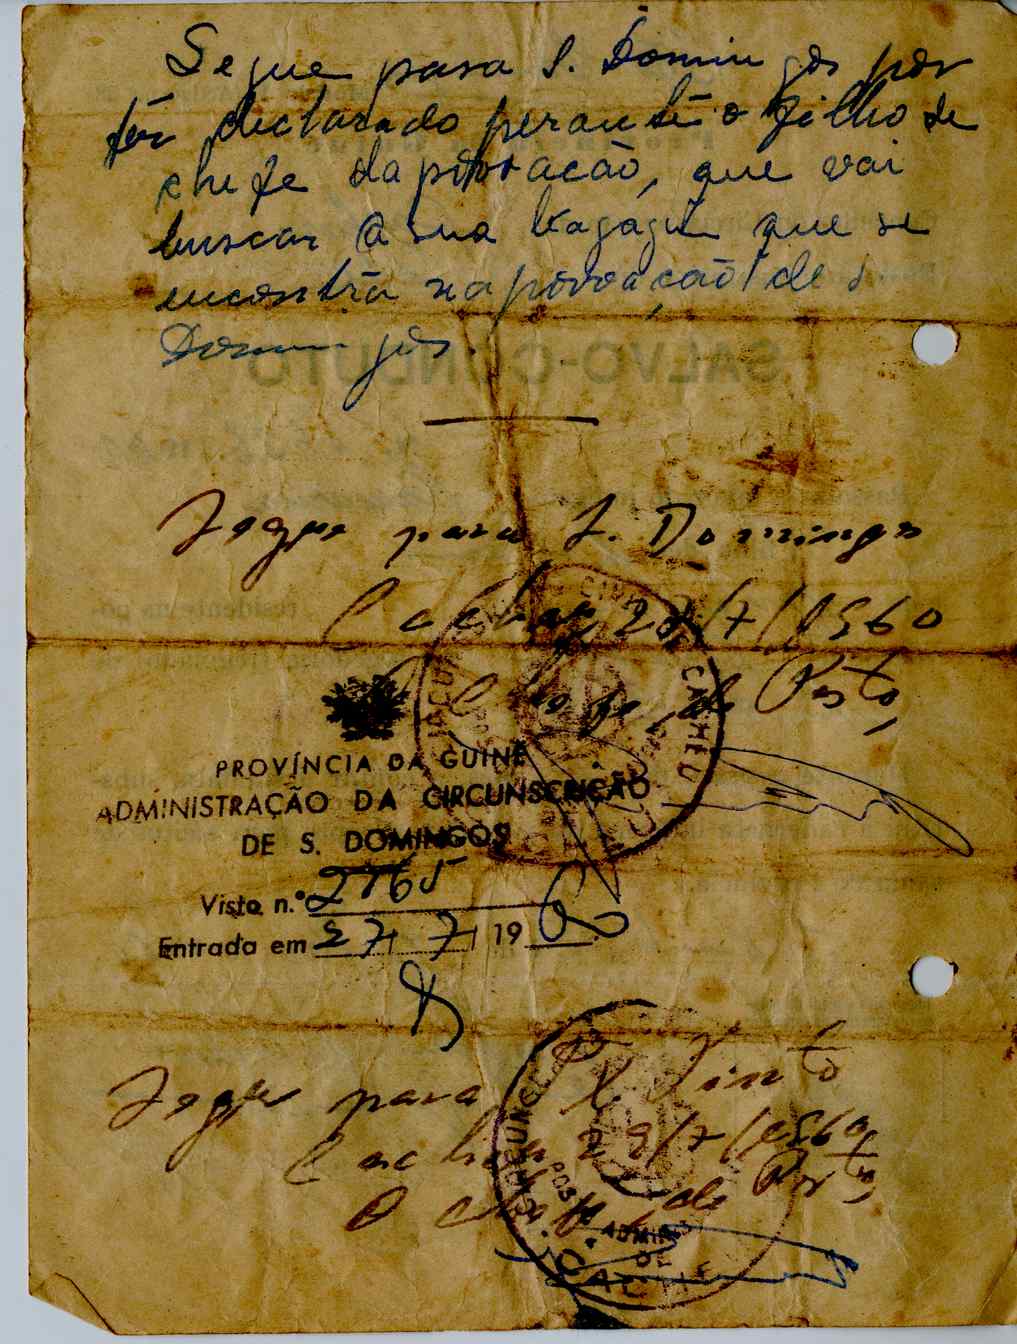 Segue para S. Domingos por
ter declarado perante o filho de
chefe da povoacão, que vai
buscar a sua bagagem que se
encontra na povoação de S.
Domingos
Segue para S. Domingos
Cacheu 27/7/1960
O Chefe de Posto,
CACHEU
PROVÍNCIA DA GUINÉ
ADMINISTRAÇÃO DA CIRCUNSCRIÇÃO
DE S. DOMINGOS
Visto n.º 2765
Entrada em 27/7/1960
Segue para P. Tinto
Cacheu 29/7/1960
O chefe de Posto,
SALVO-CONDUTO
residente na po-